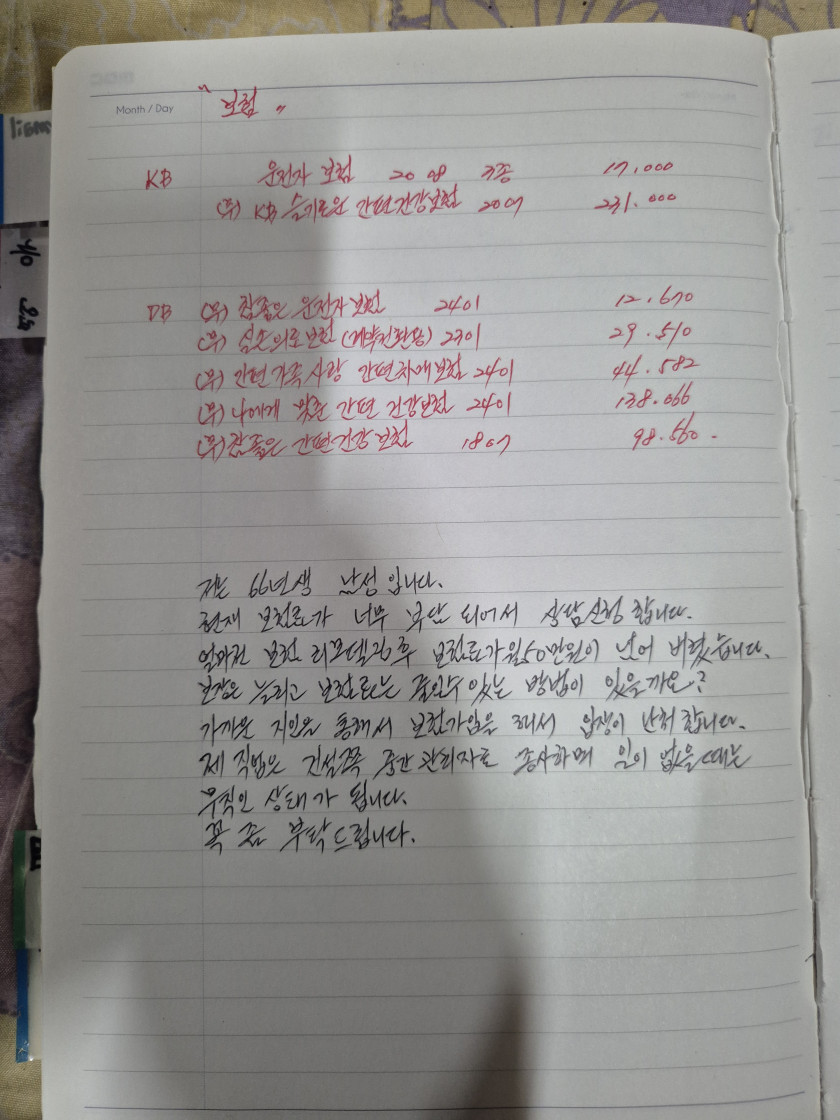 Month / Day
" 보험 "
KB 운전자 보험 2008 17,000
(무) KB 슬기로운 간편건강보험 2007 231.000
DB (무) 참좋은 운전자보험 2401 12.670
(무) 실손의료보험 (계약전환용) 2301 29.510
(무) 간편가족사랑 간편치매보험 2401 44.582
(무) 나에게 맞춘 간편 건강보험 2401 138.066
(무) 참좋은 간편건강보험 1807 98.560 -
저는 66년생 남성입니다.
현재 보험료가 너무 부담 되어서 상담신청 합니다.
얼마전 보험 리모델링 후 보험료가 월50만원이 넘어 버렸습니다.
보장은 늘리고 보험료는 줄일수 있는 방법이 있을까요?
가까운 지인을 통해서 보험가입을 해서 입장이 난처합니다.
제 직업은 건설쪽 중간관리자로 종사하며 일이 없을때는
무직인 상태가 됩니다.
꼭 좀 부탁드립니다.